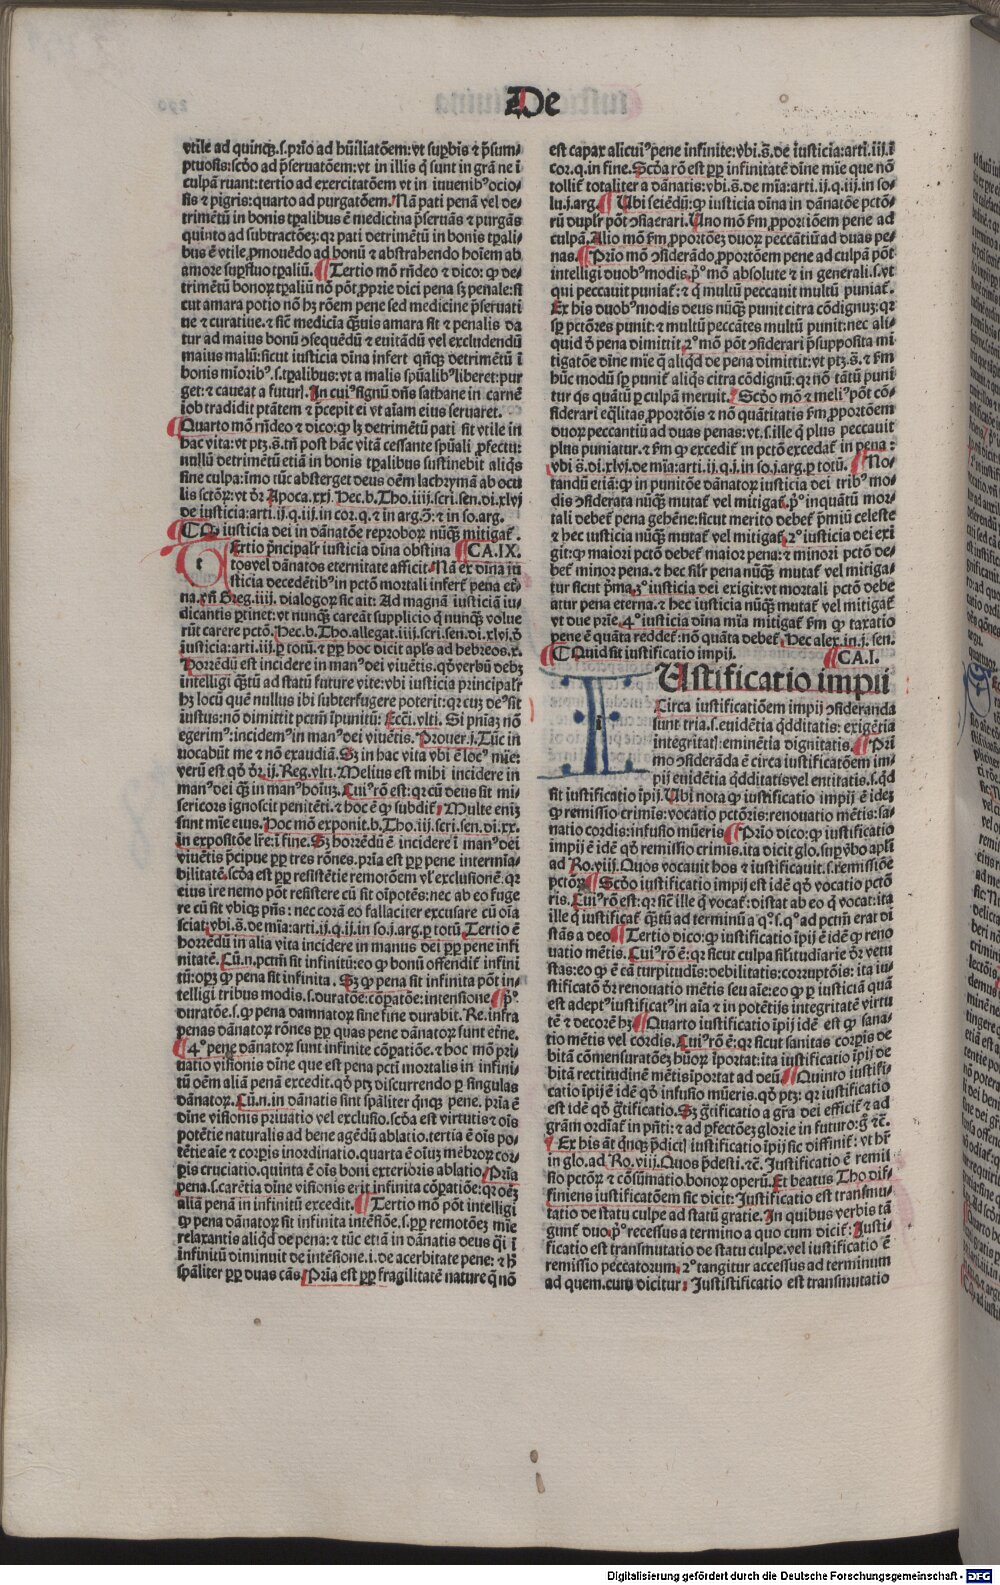 De
vtile ad quinqꝫ.s.pͥo ad hūiliatōem:vt suꝑbis ⁊ p̄sum⸗
ptuosis:scd̓o ad p̄seruatōem:vt in illis q̄ sunt in grā ne ī
culpā ruant:tertio ad exercitatōem vt in iuuenibꝰ ocio⸗
sis ⁊ pigris:quarto ad purgatōem. Nā pati penā vel de⸗
trimētū in bonis tꝑalibus ē medicina p̄seruās ⁊ purgās
quinto ad subtractōeꝫ:qꝛ pati detrimētū in bonis tꝑali⸗
bus ē vtile ꝓmouēdo ad bonū ⁊ abstrahendo hoīem ab
amore suꝑfluo tꝑaliū. Tertio mō rn̄deo ⁊ dico: ꝙ de⸗
trimētū bonoꝝ tꝑaliū nō pōt ꝓprie dici pena sꝫ penale:si
cut amara potio nō hꝫ rōem pene sed medicine p̄seruati
ue ⁊ curatiue.⁊ sic̄ medicīa q̄uis amara sit ⁊ penalis da
tur ad maius bonū ↄsequēdū ⁊ euitādū vel excludendū
maius malū:sicut iusticia dīna infert qn̄qꝫ detrimētū ī
bonis mīoribꝰ.s.tꝑalibus:vt a malis sp̄ualibꝰ liberet:pur
get:⁊ caueat a futur̄. In cuiꝰ signū dn̄s sathane in carnē
iob tradidit ptātem ⁊ p̄cepit ei vt aīam eius seruaret.
Quarto mō rn̄deo ⁊ dico:ꝙ lꝫ detrimētū pati sit vtile in
hac vita:vt ptꝫ.s̄.tn̄ post hāc vitā cessante sp̄uali ꝓfectu:
nullū detrimētū etiā in bonis tꝑalibus sustinebit aliqs
sine culpa:īmo tūc absterget deus oēm lachrymā ab ocu
lis sctōꝝ:vt d̓r Apoca.xxj. Hec.b.Tho.iiij.scri.sen.di.xlvj
de iusticia:arti.ij.q.iij.in cor.q.⁊ in arg.ↄ̄:⁊ in so.arg.
Qꝙ iusticia dei in dānatōe reproboꝝ nūq̄ mitigat̄.
Ertio p̄ncipalr̄ iusticia dīna obstina CA.IX.
tos vel dānatos eternitate afficit. Nā ex dīna iu
sticia decedētibꝰ in pctō mortali infert̄ pena et̄⸗
na.vn̄ Greg.iiij.dialogoꝝ sic ait: Ad magnā iusticiā iu⸗
dicantis ꝑtinet:vt nunq̄ careāt supplicio q̄ nunq̄ volue
rūt carere pctō. Hec.b.Tho.allegat.iiij.scri.sen.di.xlvj.d̓
iusticia:arti.iij.ꝑ totū.⁊ ꝑꝑ hoc dicit apl̓s ad hebreos.x.
Horrēdū est incidere in manꝰ dei viuētis.qd̓ verbū debꝫ
intelligi q̄tū ad statū future vite:vbi iusticia principalr̄
hꝫ locū quē nullus ibi subterfugere poterit:qꝛ cuꝫ deꝰ sit
iustus:nō dimittit pctm̄ īpunitū: Ecci̓.vlti. Si pnīaꝫ nō
egerimꝰ:incidemꝰ in manꝰ dei viuētis. Prouer.j. Tūc in
uocabūt me ⁊ nō exaudiā. Sꝫ in hac vita vbi ē locꝰ mīe:
verū est qd̓ d̓r.ij. Reg.vlti. Melius est mihi incidere in
manꝰ dei q̄ in manꝰ hoīuꝫ. Cuiꝰ rō est: qꝛ cū deus sit mi⸗
sericors ignoscit penitēti.⁊ hoc ē ꝙ subdit̄: Multe eniꝫ
sunt mīe eius. Hoc mō exponit.b.Tho.iij.scri.sen.di.xx.
in expositōe lr̄e:ī fine. Sꝫ horrēdū ē incidere ī manꝰ dei
viuētis p̄cipue ꝑꝑ tres rōnes. prīa est ꝑꝑ pene intermīa⸗
bilitatē.scd̓a est ꝑꝑ resistētie remotōem vl̓ exclusionē.qꝛ
eius ire nemo pōt resistere cū sit oīpotēs:nec ab eo fuge
re cū sit vbiqꝫ pn̄s: nec corā eo fallaciter excusare cū oīa
sciat.vbi.s̄.de mīa:arti.ij.q.ij.in so.j.arg.ꝑ totū. Tertio ē
horrēdū in alia vita incidere in manus dei ꝑꝑ pene infi
nitatē. Cū.n.pctm̄ sit infinitū:eo ꝙ bonū offendit̄ infini
tū:oꝫ ꝙ pena sit infinita . Sꝫ ꝙ pena sit infinita pōt in⸗
telligi tribus modis.s.duratōe:cōpatōe:intensione pͦ.
duratōe.s.ꝙ pena damnatoꝝ sine fine durabit. Re.infra
penas dānatoꝝ rōnes ꝑꝑ quas pene dānatoꝝ sunt et̄ne.
4ꝰ pene dānatoꝝ sunt infinite cōꝑatiōe.⁊ hoc mō pri⸗
uatio visionis dīne que est pena pcti mortalis in infini⸗
tū oēm aliā penā excedit.qd̓ ptꝫ discurrendo ꝑ singulas
dānatoꝝ. Cū.n.in dānatis sint sp̄aliter qnqꝫ pene. prīa ē
dīne visionis priuatio vel exclusio.scd̓a est virtutis ⁊ oīs
potētie naturalis ad bene agēdū ablatio.tertia ē oīs po⸗
tētie aīe ⁊ corꝑis inordinatio.quarta ē oīuꝫ mēbroꝝ cor⸗
pis cruciatio.quinta ē oīs boni exterioris ablatio. Prīa
pena.s.carētia dīne visionis erit infinita cōꝑatiōe:qꝛ oēꝫ
aliā penā in infinitū excedit. Tertio mō pōt intelligi
ꝙ pena dānatoꝝ sit infinita intēsiōe.s.ꝑꝑ remotōeꝫ mīe
relaxantis aliqd̓ de pena:⁊ tūc etiā in dānatis deus q̄i ī
infinitū diminuit de intēsione.i.de acerbitate pene: ⁊ h̄
sp̄aliter ꝑꝑ duas cās. Prīa est ꝑꝑ fragilitatē nature q̄ nō
est capax alicuiꝰ pene infinite:vbi.s̄.de iusticia:arti.iij.ī
cor.q.in fine. Scd̓a rō est ꝑꝑ infinitatē dīne mīe que nō
tollit̄ totaliter a dānatis:vbi.s̄.de mīa:arti.ij.q.iij.in so⸗
lu.j.arg. Vbi sciēdū:ꝙ iusticia dīna in dānatōe pctō⸗
rū duplr̄ pōt ↄsiderari. Uno mō ẜm ꝓportiōem pene ad
culpā. Alio mō ẜm ꝓportōeꝫ duoꝝ peccātiū ad duas pe⸗
nas. Prio mō ↄsiderādo ꝓportōem pene ad culpā pōt
intelligi duobꝰ modis.pͦ.mō absolute ⁊ in generali.s.vt
qui peccauit puniat̄: ⁊ q̄ multū peccauit multū puniat̄.
Ex his duobꝰ modis deus nūq̄ punit citra cōdignuꝫ:qꝛ
sꝑ pctōres punit:⁊ multū peccātes multū punit:nec ali⸗
quid d̓ pena dimittit.2ꝰ mō pōt ↄsiderari p̄supposita mi
tigatōe dīne mīe q̄ aliqd̓ de pena dimittit:vt ptꝫ.s̄.⁊ ẜm
hūc modū sꝑ punit̄ aliqs citra cōdignū:qꝛ nō tātū puni
tur qs quātū ꝑ culpā meruit. Scd̓o mō ⁊ meliꝰ pōt cō⸗
siderari eq̄litas ꝓportōis ⁊ nō quātitatis ẜm ꝓportōem
duoꝝ peccantiū ad duas penas:vt.s.ille q̄ plus peccauit
plus puniatur.⁊ ẜm ꝙ excedit̄ in pctō excedat̄ in pena :
vbi s̄.di.xlvj.de mīa:arti.ij.q.j.in so.j.arg.ꝑ totū. No⸗
tandū etiā:ꝙ in punitōe dānatoꝝ iusticia dei tribꝰ mo⸗
dis ↄsiderata nūq̄ mutat̄ vel mitigat̄.pͦ inquātū mor⸗
tali debet̄ pena gehēne:sicut merito debet̄ p̄miū celeste
⁊ hec iusticia nūq̄ mutat̄ vel mitigat̄.2ꝰ iusticia dei exi
git:ꝙ maiori pctō debet̄ maior pena:⁊ minori pctō de⸗
bet̄ minor pena.⁊ hec silr̄ pena nūq̄ mutat̄ vel mitiga⸗
tur sicut p̄ma.3ꝰ iusticia dei exigit:vt mortali pctō debe
atur pena eterna.⁊ hec iusticia nūq̄ mutat̄ vel mitigat̄
vt due prīe.4ꝰ iusticia dīna mīa mitigat̄ ẜm ꝙ taxatio
pene ē quāta reddet̄:nō quāta debet̄. Hec alex.in.j.sen.
Quid sit iustificatio impij. CA.I.
Ustificatio impii
Circa iustificatiōem impij ↄsideranda
sunt tria.s.euidētia q̄dditatis: exigētia
integritatis:eminētia dignitatis. Pri
mo ↄsiderāda ē circa iustificatiōem im⸗
pij euidētia q̄dditatis vel entitatis.s.qd̓
sit iustificatio īpij. Vbi nota ꝙ iustificatio impij ē ideꝫ
ꝙ remissio crimīs:vocatio pctōris:renouatio mētis:sa⸗
natio cordis:infusio mūeris. Prio dico:ꝙ iustificatio
impij ē idē qd̓ remissio crimīs.ita dicit glo.sup̄ vbo apl̓i
ad Ro.viij. Quos vocauit hos ⁊ iustificauit.s.remissiōe
pctōꝝ. Scd̓o iustificatio impij est idē qd̓ vocatio pctō
ris. Cuiꝰ rō est:qꝛ sic̄ ille q̄ vocat̄:distat ab eo q̄ vocat:ita
ille q̄ iustificat̄ q̄tū ad terminū a qͦ.s.qꝰ ad pctm̄ erat di
stās a deo. Tertio dico:ꝙ iustificatio īpij ē idē ꝙ reno
uatio mētis. Cuiꝰ rō ē:qꝛ sicut culpa silitudiarie d̓r vetu
stas:eo ꝙ ē cā turpitudīs:debilitatis:corruptōis: ita iu⸗
stificatō d̓r renouatio mētis seu aīe:eo ꝙ ꝑ iusticiā quā
est adeptꝰ iustificatꝰ in aīa ⁊ in potētijs integritatē virtu
tē ⁊ decorē hꝫ. Quarto iustificatio īpij idē est ꝙ sana⸗
tio mētis vel cordis. Cuiꝰ rō ē:qꝛ sicut sanitas corꝑis de
bitā cōmensuratōeꝫ huoꝝ īportat:ita iustificatio īpij de
bitā rectitudinē mētis īportat ad deū. Quinto iustifi⸗
catio īpij ē idē qd̓ infusio mūeris.qd̓ ptꝫ: qꝛ iustificatio
est idē qd̓ gr̄tificatio. Sꝫ gr̄tificatio a grā dei efficit̄ ⁊ ad
grām ordīat̄ in pn̄ti:⁊ ad ꝑfectōeꝫ glorie in futuro:ḡ ⁊c̄.
Ex his āt qnqꝫ p̄dict̄ iustificatio īpij sic diffinit̄: vt hr̄
in glo.ad Ro.viij. Quos p̄desti.⁊c̄. Justificatio ē remis
sio pctōꝝ ⁊ cōsūmatio.bonoꝝ operū. Et beatus Tho dif⸗
finiens iustificatōem sic dicit: Justificatio est transmu⸗
tatio de statu culpe ad statū gratie. In quibus verbis tā
gunt̄ duo.pͦ recessus a termino a quo cum dicit̄: Justi⸗
ficatio est transmutatio de statu culpe.vel iustificatio ē
remissio peccatorum.2ꝰ tangitur accessus ad terminum
ad quem.cum dicitur: Justistificatio est transmutatio
Digitalisierung gefördert durch die Deutsche Forschungsgemeinschaft - DFG